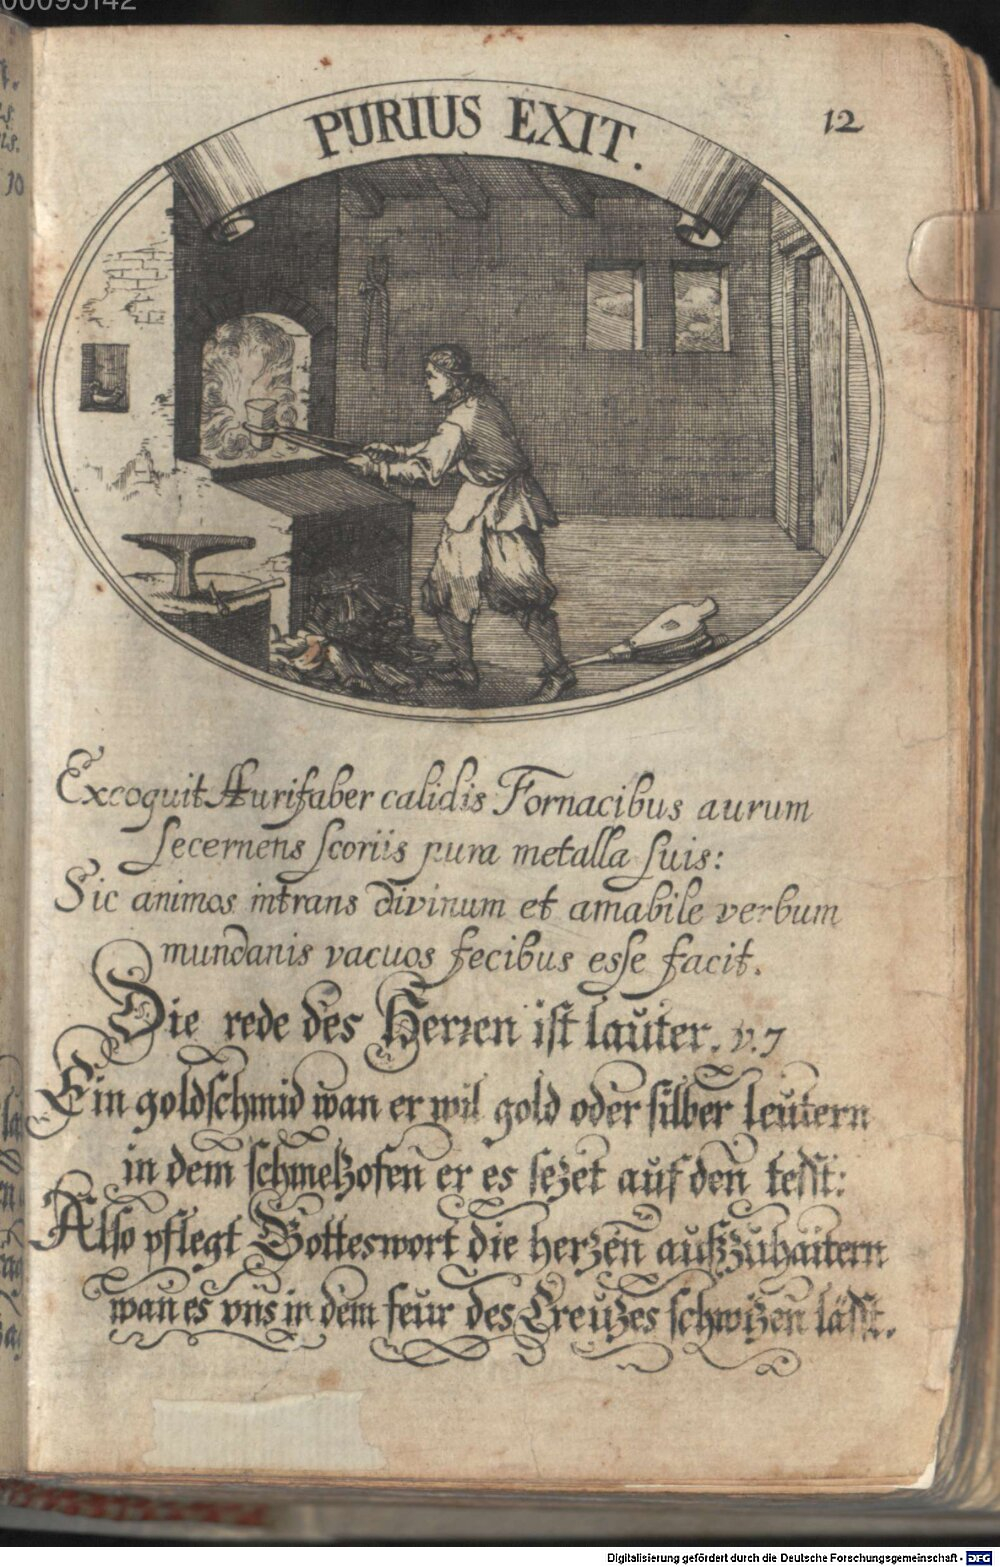 00095142
PURIUS EXIT.
12
Excoquit Aurifaber calidis Fornacibus aurum
secernens scoriis pura metalla suis:
Sic animos intrans divinum et amabile verbum
mundanis vacuos fecibus esse facit.
Die rede des Herren ist lauter. v. 7
Ein goldschmid wan er wil gold oder silber leutern
in dem schmelzofen er es sezet auf den tesst:
Also pflegt Gotteswort die herzen aufzuhaitern
wan es vns in dem feur des Creuzes schwizen lässt.
Digitalisierung gefördert durch die Deutsche Forschungsgemeinschaft - DFG